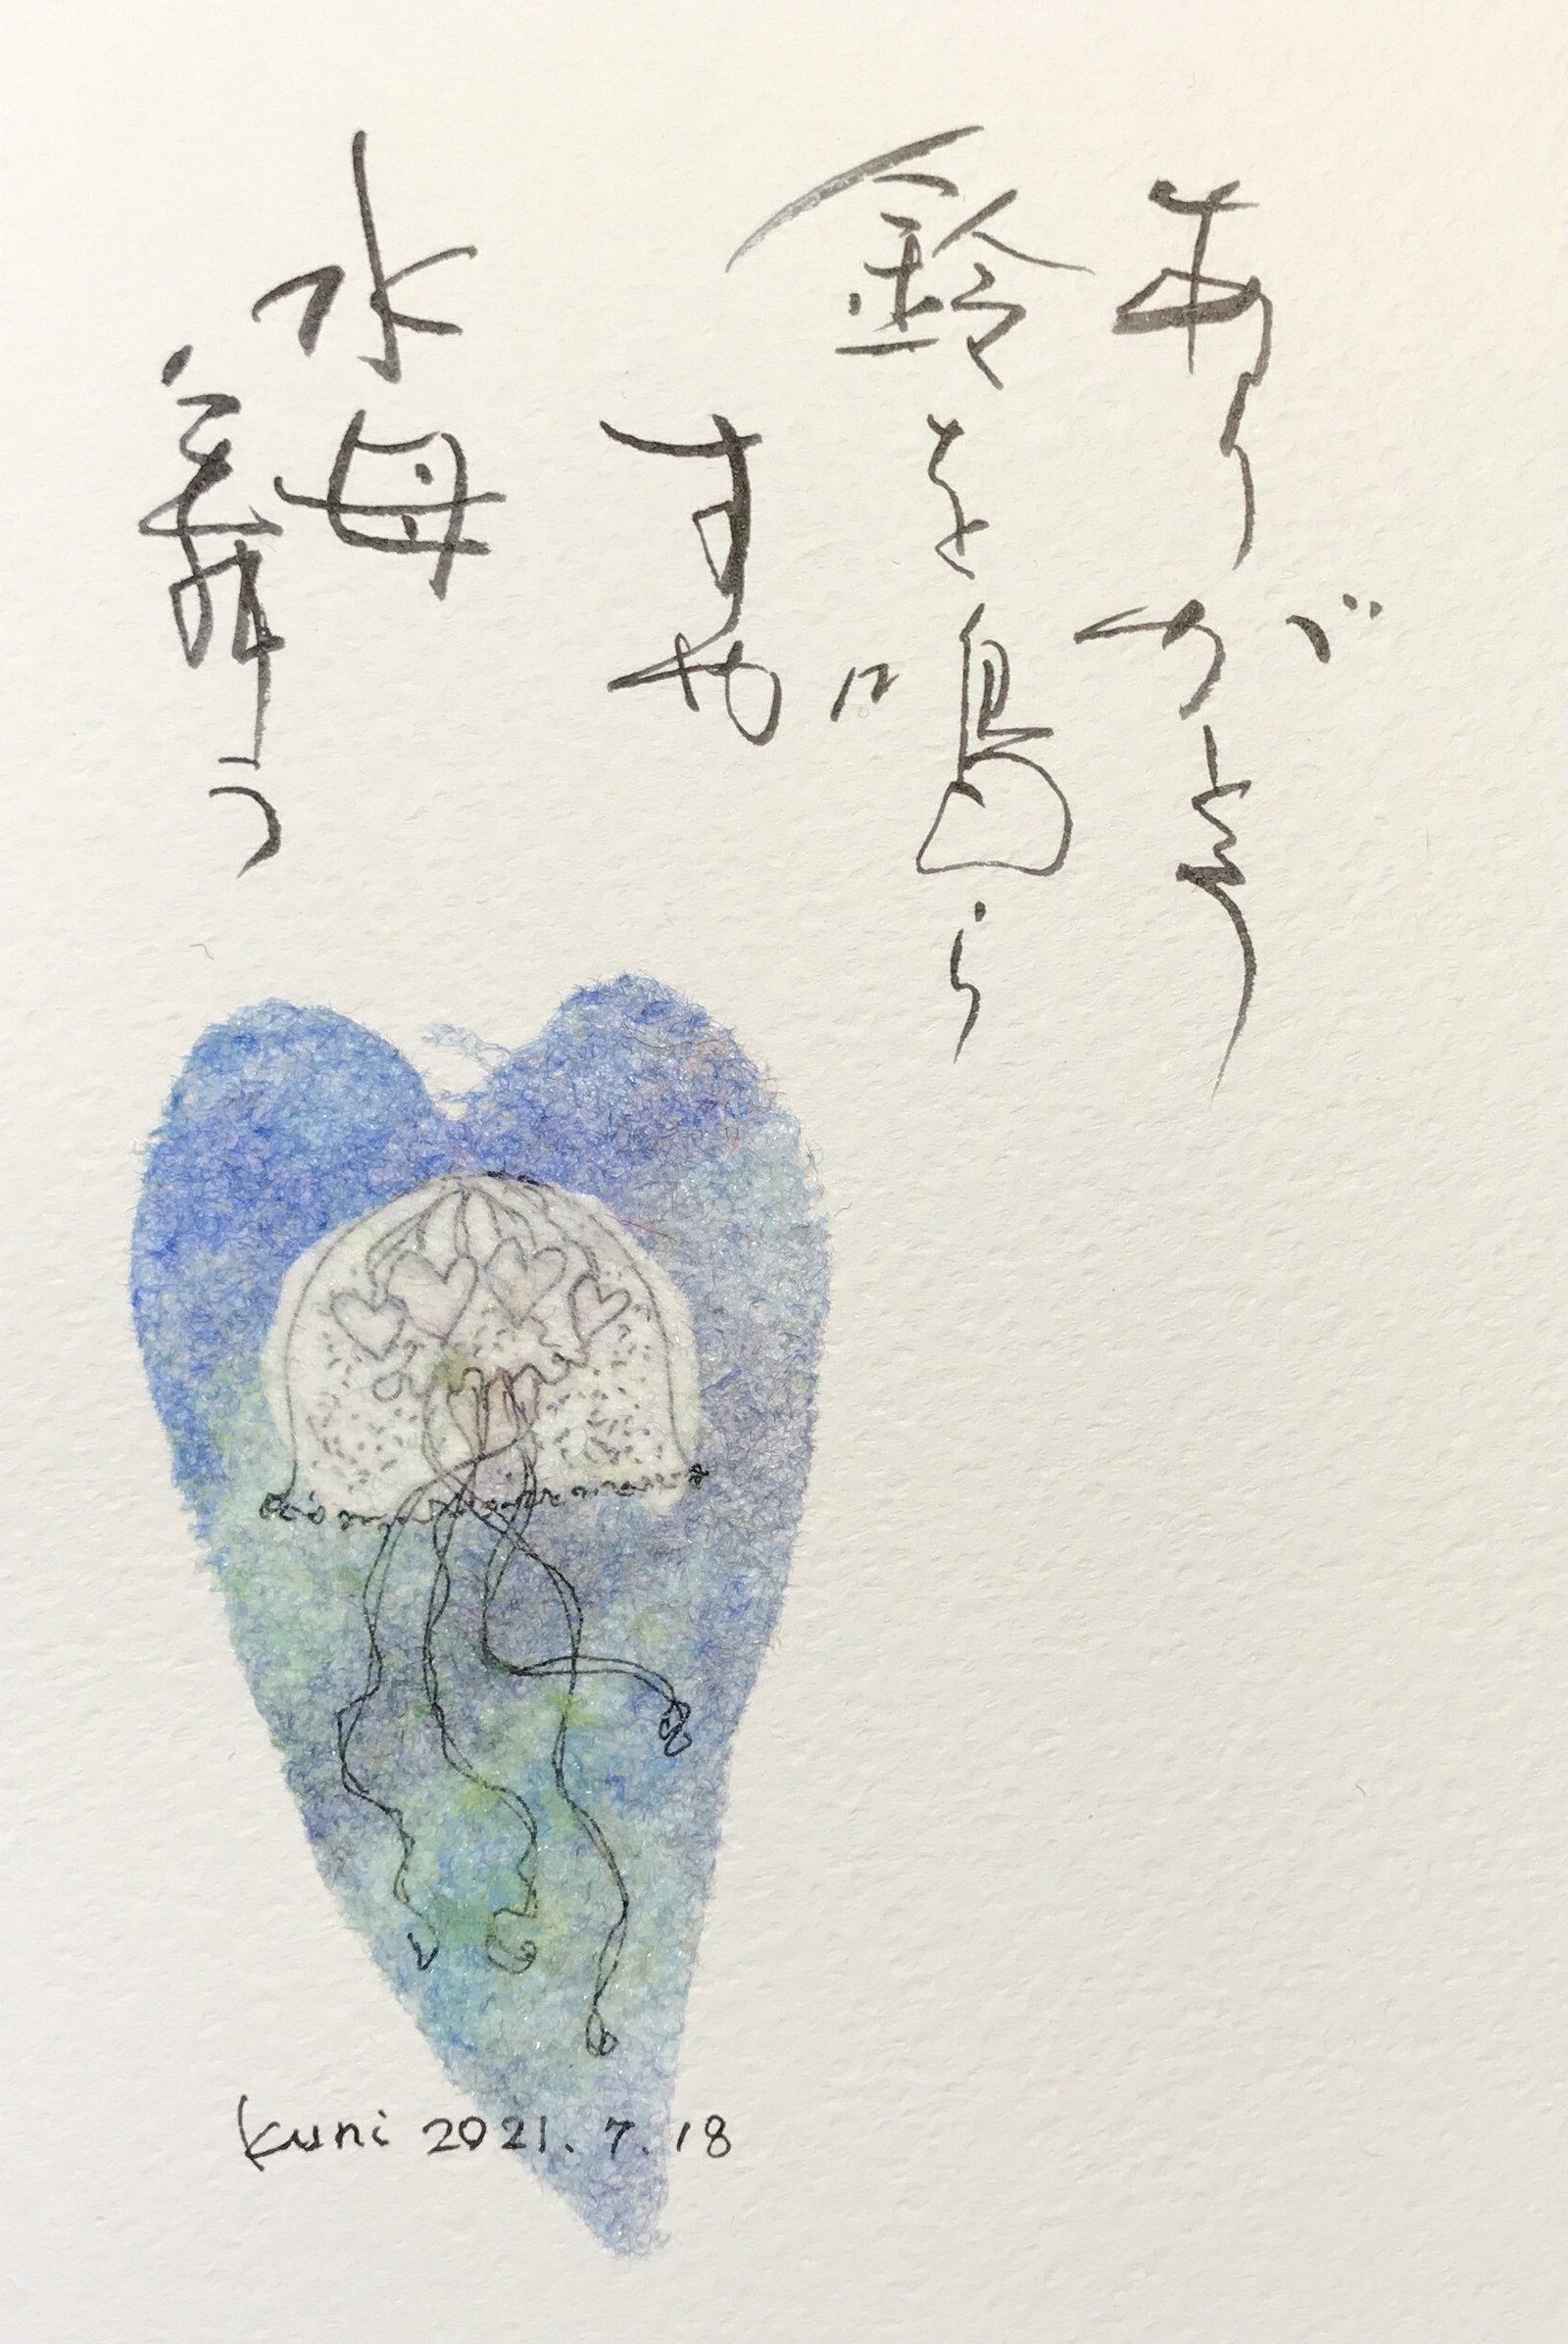 ありがとう
鈴を鳴ら
すや
水母
舞う
kuni 2021.7.18